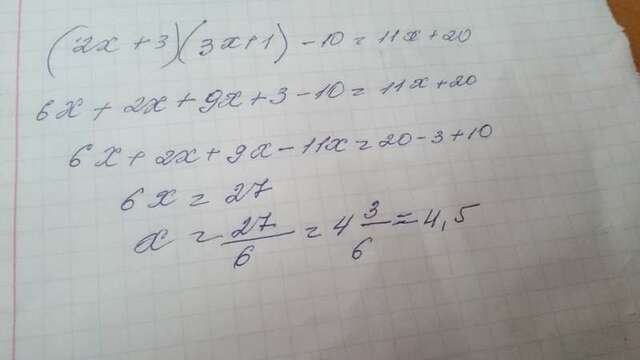 (2x+3)(3x+1)-10=11x+20
6x+2x+9x+3-10=11x+20
6x+2x+9x-11x=20-3+10
6x=27
x=27/6=4 3/6=4,5